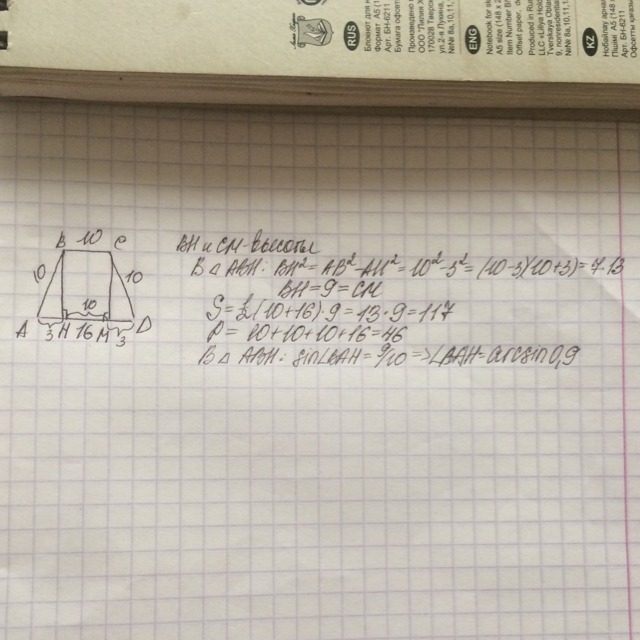 RUS
Блокнот для
Формат А5 (1
Арт. БН-6211
Бумага офсетн
Произведено
ООО "Линия
170028 Тверск
ул.2-я Лукина,
№№ 8а,10,11,
ENG
Notebook for sk
A5 size (148 x 2
Item Number
Offset paper,
Produced in Rus
LLC «Liniya Hold
Tverskaya
9, nonresidential
№№ 8a,10,11,1
KZ
Пішім А5 (148
Арт. БН-6211
B 10 C
10 10
10
A 3 H 16 M 3 D
BH и CM-высоты
В △ ABH: BH² = AB²-AH² = 10²-3² = (10-3)(10+3) = 7·13
BH = 9 = CM
S = ½(10+16)·9 = 13·9 = 117
P = 10+10+10+16 = 46
В △ ABH: sin∠BAH = 9/10 => ∠BAH = arcsin 0,9